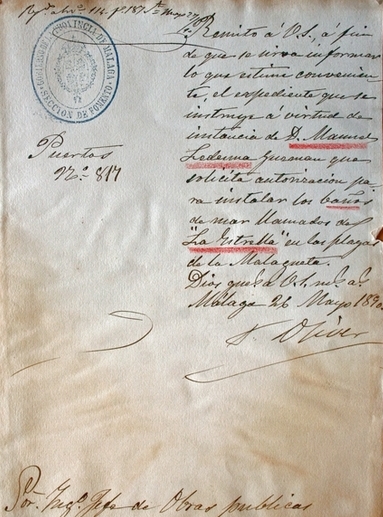 GOBIERNO DE LA PROVINCIA DE MALAGA
SECCION DE FOMENTO
Remito á V.S. á fin
de que se sirva informar
lo que estime convenien-
te, el expediente que se
instruye á virtud de
instancia de D. Manuel
Ledesma Guzman que
solicita autorizacion pa
ra instalar los baños
de mar llamados de
"La Estrella" en las playas
de la Malagueta.
Dios gue á V.S. ms. as.
Málaga 26 Mayo 189
Oliver
Puertos
No. 817
Sor. Ingo. Jefe de Obras publicas